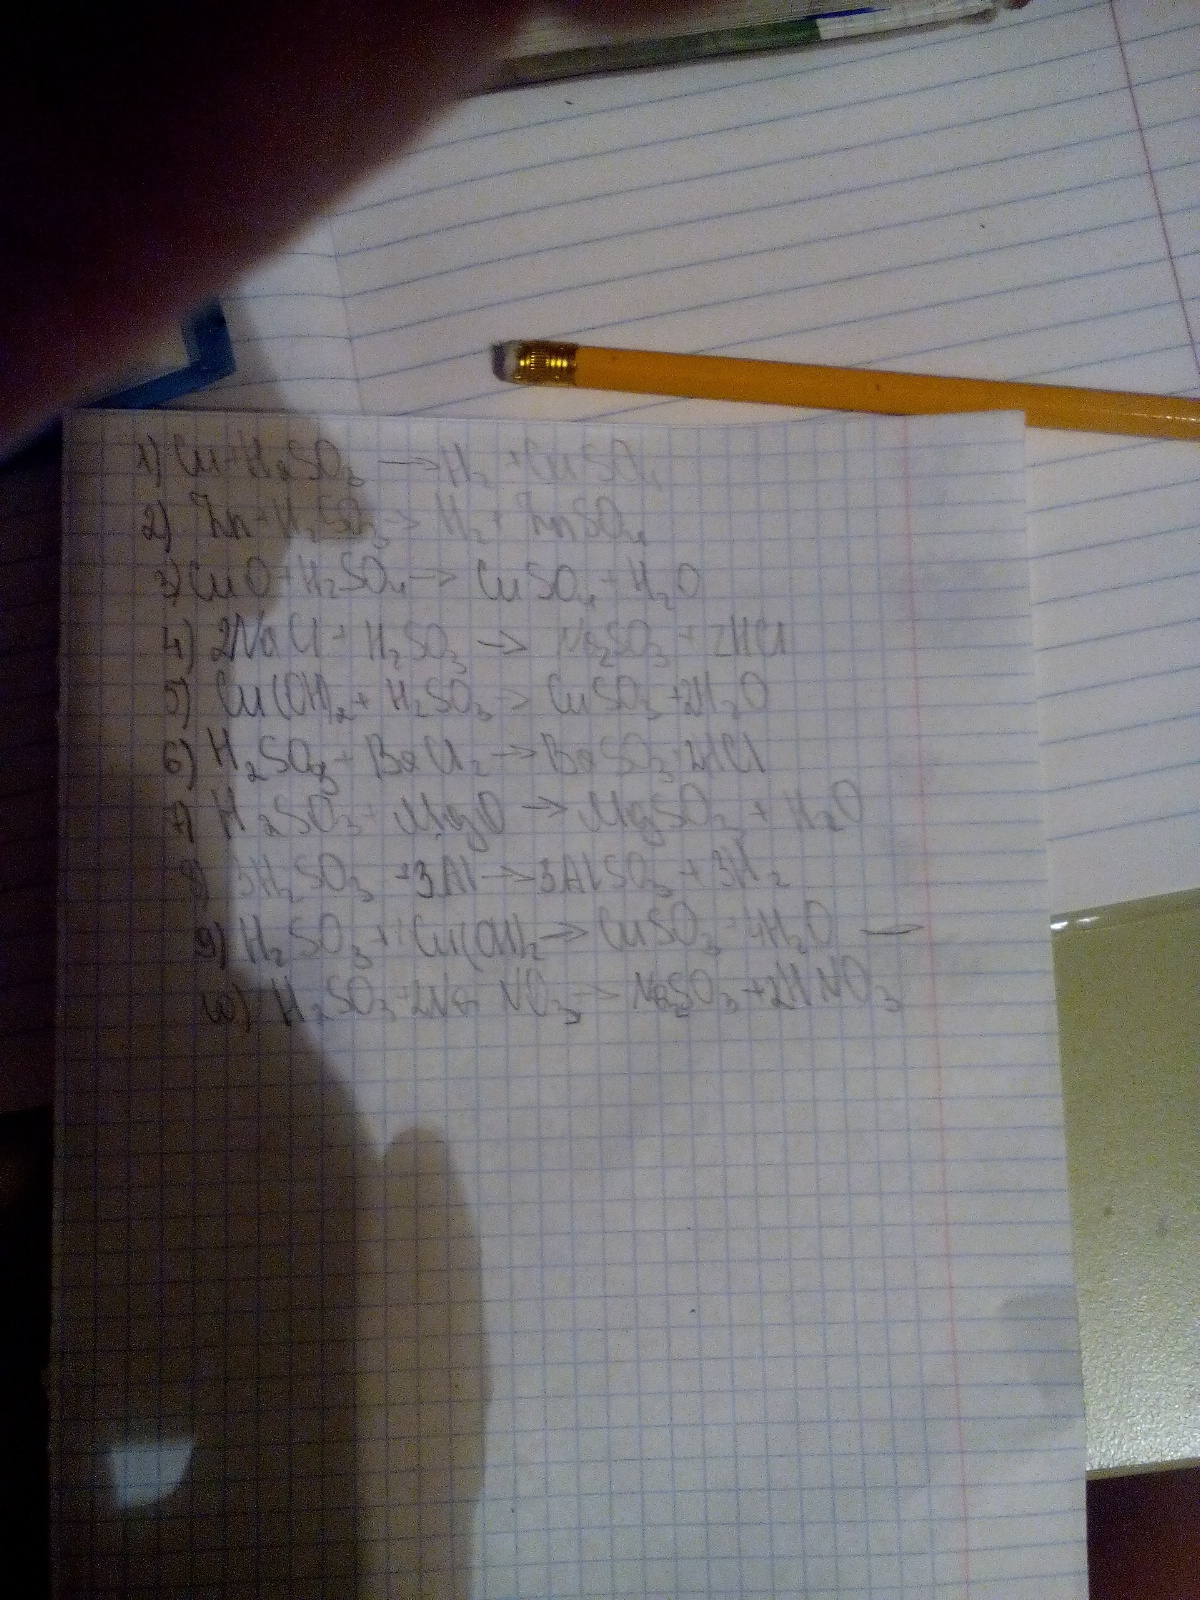 1) Cu + H₂SO₃ → H₂ + CuSO₄
2) Zn + H₂SO₃ → H₂ + ZnSO₄
3) CuO + H₂SO₄ → CuSO₄ + H₂O
4) 2NaCl + H₂SO₃ → Na₂SO₃ + 2HCl
5) Cu(OH)₂ + H₂SO₃ → CuSO₃ + 2H₂O
6) H₂SO₃ + BaCl₂ → BaSO₃ + 2HCl
7) H₂SO₃ + MgO → MgSO₃ + H₂O
8) 3H₂SO₃ + 3Al → 3AlSO₃ + 3H₂
9) H₂SO₃ + Cu(OH)₂ → CuSO₃ + H₂O —
10) H₂SO₃ + 2NaNO₃ → Na₂SO₃ + 2HNO₃